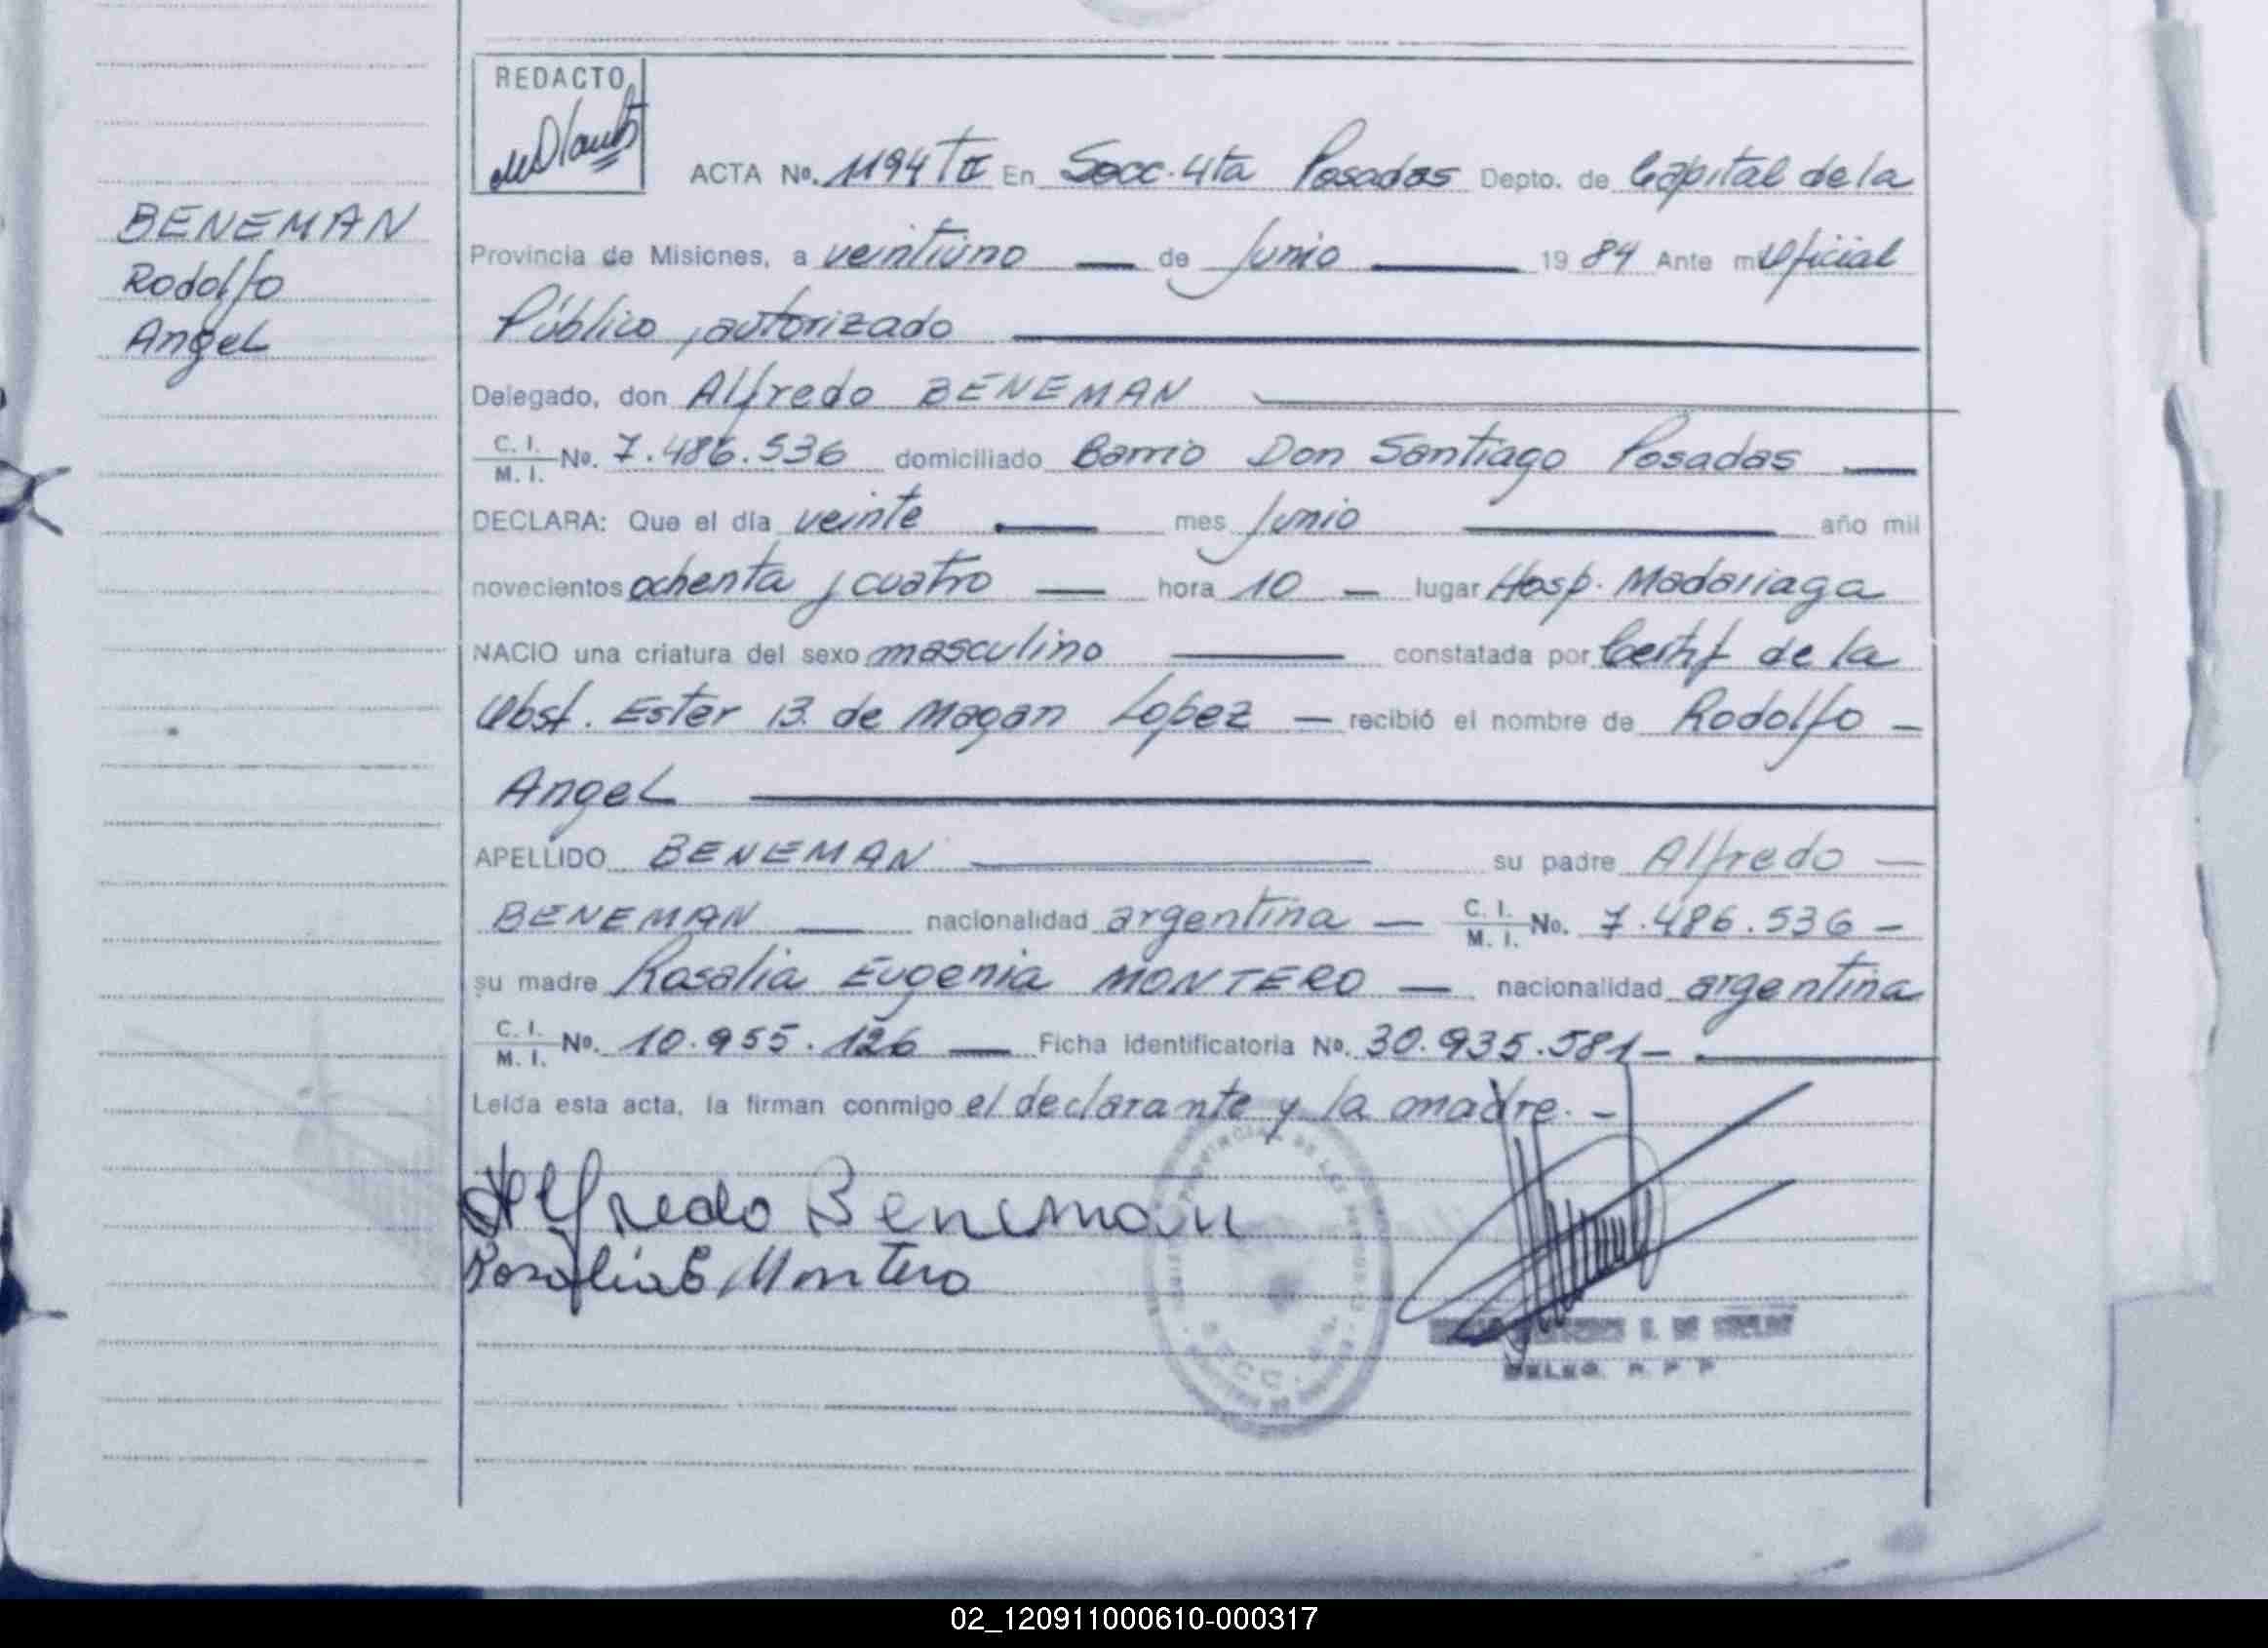 REDACTO
BENEMAN
Rodolfo
Angel
ACTA No. 1194 TII En Secc. 4ta Posadas Depto. de Capital de la
Provincia de Misiones, a veintiuno — de Junio — 1984 Ante mi Oficial
Público, autorizado —
Delegado, don Alfredo BENEMAN —
C. I. / M. I. No. 7.486.536 domiciliado Barrio Don Santiago Posadas —
DECLARA: Que el día veinte — mes Junio — año mil
novecientos ochenta y cuatro — hora 10 — lugar Hosp. Madariaga
NACIO una criatura del sexo masculino — constatada por Certif de la
Obst. Ester B. de Magan Lopez — recibió el nombre de Rodolfo —
Angel —
APELLIDO BENEMAN — su padre Alfredo —
BENEMAN — nacionalidad argentina — C. I. / M. I. No. 7.486.536 —
su madre Rosalia Eugenia MONTERO — nacionalidad argentina
C. I. / M. I. No. 10.955.126 — Ficha Identificatoria No. 30.935.581 — —
Leída esta acta, la firman conmigo el declarante y la madre. —
Alfredo Beneman
Rosalia E Montero
02_120911000610-000317